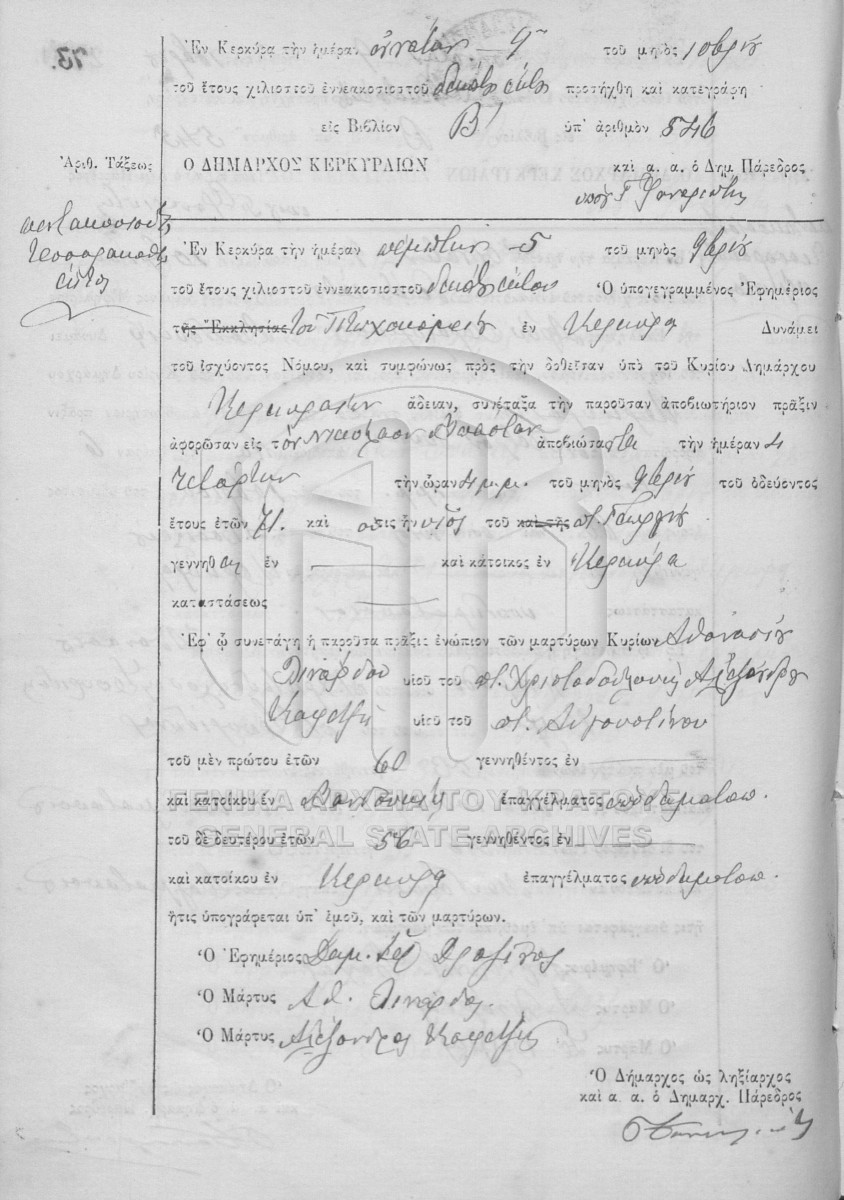 Ἐν Κερκύρᾳ τὴν ἡμέραν ἐννάτην 9 τοῦ μηνὸς 10βρίου
τοῦ ἔτους χιλιοστοῦ ἐννεακοσιοστοῦ δεκάτου ἕκτου προσήχθη καὶ κατεγράφη
εἰς Βιβλίον Β' ὑπ' ἀριθμὸν 546
Ἀριθ. Τάξεως
Ο ΔΗΜΑΡΧΟΣ ΚΕΡΚΥΡΑΙΩΝ
καὶ α. α. ὁ Δημ. Πάρεδρος
πεντακοσιοστὸς
τεσσαρακοστὸς
ἕκτος
Ἐν Κερκύρᾳ τὴν ἡμέραν πέμπτην 5 τοῦ μηνὸς 9βρίου
τοῦ ἔτους χιλιοστοῦ ἐννεακοσιοστοῦ δεκάτου ἕκτου Ὁ ὑπογεγραμμένος Ἐφημέριος
τῆς Ἐκκλησίας τοῦ Πτωχοκομείου ἐν Κερκύρᾳ Δυνάμει
τοῦ ἰσχύοντος Νόμου, καὶ συμφώνως πρὸς τὴν δοθεῖσαν ὑπὸ τοῦ Κυρίου Δημάρχου
Κερκυραίων ἄδειαν, συνέταξα τὴν παροῦσαν ἀποβιωτήριον πρᾶξιν
ἀφορῶσαν εἰς τὸν Νικόλαον ἀποβιώσαντα τὴν ἡμέραν 4
τετάρτην τὴν ὥραν 4 μ.μ. τοῦ μηνὸς 9βρίου τοῦ ὁδεύοντος
ἔτους ἐτῶν 71. καὶ ὅστις ἦν υἱὸς τοῦ καὶ τῆς π. Γεωργίου
γεννηθεὶς ἐν καὶ κάτοικος ἐν Κερκύρᾳ
καταστάσεως
Ἐφ' ᾧ συνετάγη ἡ παροῦσα πρᾶξις ἐνώπιον τῶν μαρτύρων Κυρίων Ἀθανασίου
Λινάρδου υἱοῦ τοῦ π. Χριστοδούλου κ Ἀλεξάνδρου
Καφετζῆ υἱοῦ τοῦ π. Αὐγουστίνου
τοῦ μὲν πρώτου ἐτῶν 60 γεννηθέντος ἐν
καὶ κατοίκου ἐν ἐπαγγέλματος ὑποδηματοπ.
ΓΕΝΙΚΑ ΑΡΧΕΙΑ ΤΟΥ ΚΡΑΤΟΥΣ
GENERAL STATE ARCHIVES
τοῦ δὲ δευτέρου ἐτῶν 56 γεννηθέντος ἐν
καὶ κατοίκου ἐν Κερκύρᾳ ἐπαγγέλματος ὑποδηματοπ.
ἥτις ὑπογράφεται ὑπ' ἐμοῦ, καὶ τῶν μαρτύρων.
Ὁ Ἐφημέριος
Ὁ Μάρτυς Ἀθ. Λινάρδος
Ὁ Μάρτυς Ἀλέξανδρος Καφετζῆς
Ὁ Δήμαρχος ὡς ληξίαρχος
καὶ α. α. ὁ Δημαρχ. Πάρεδρος